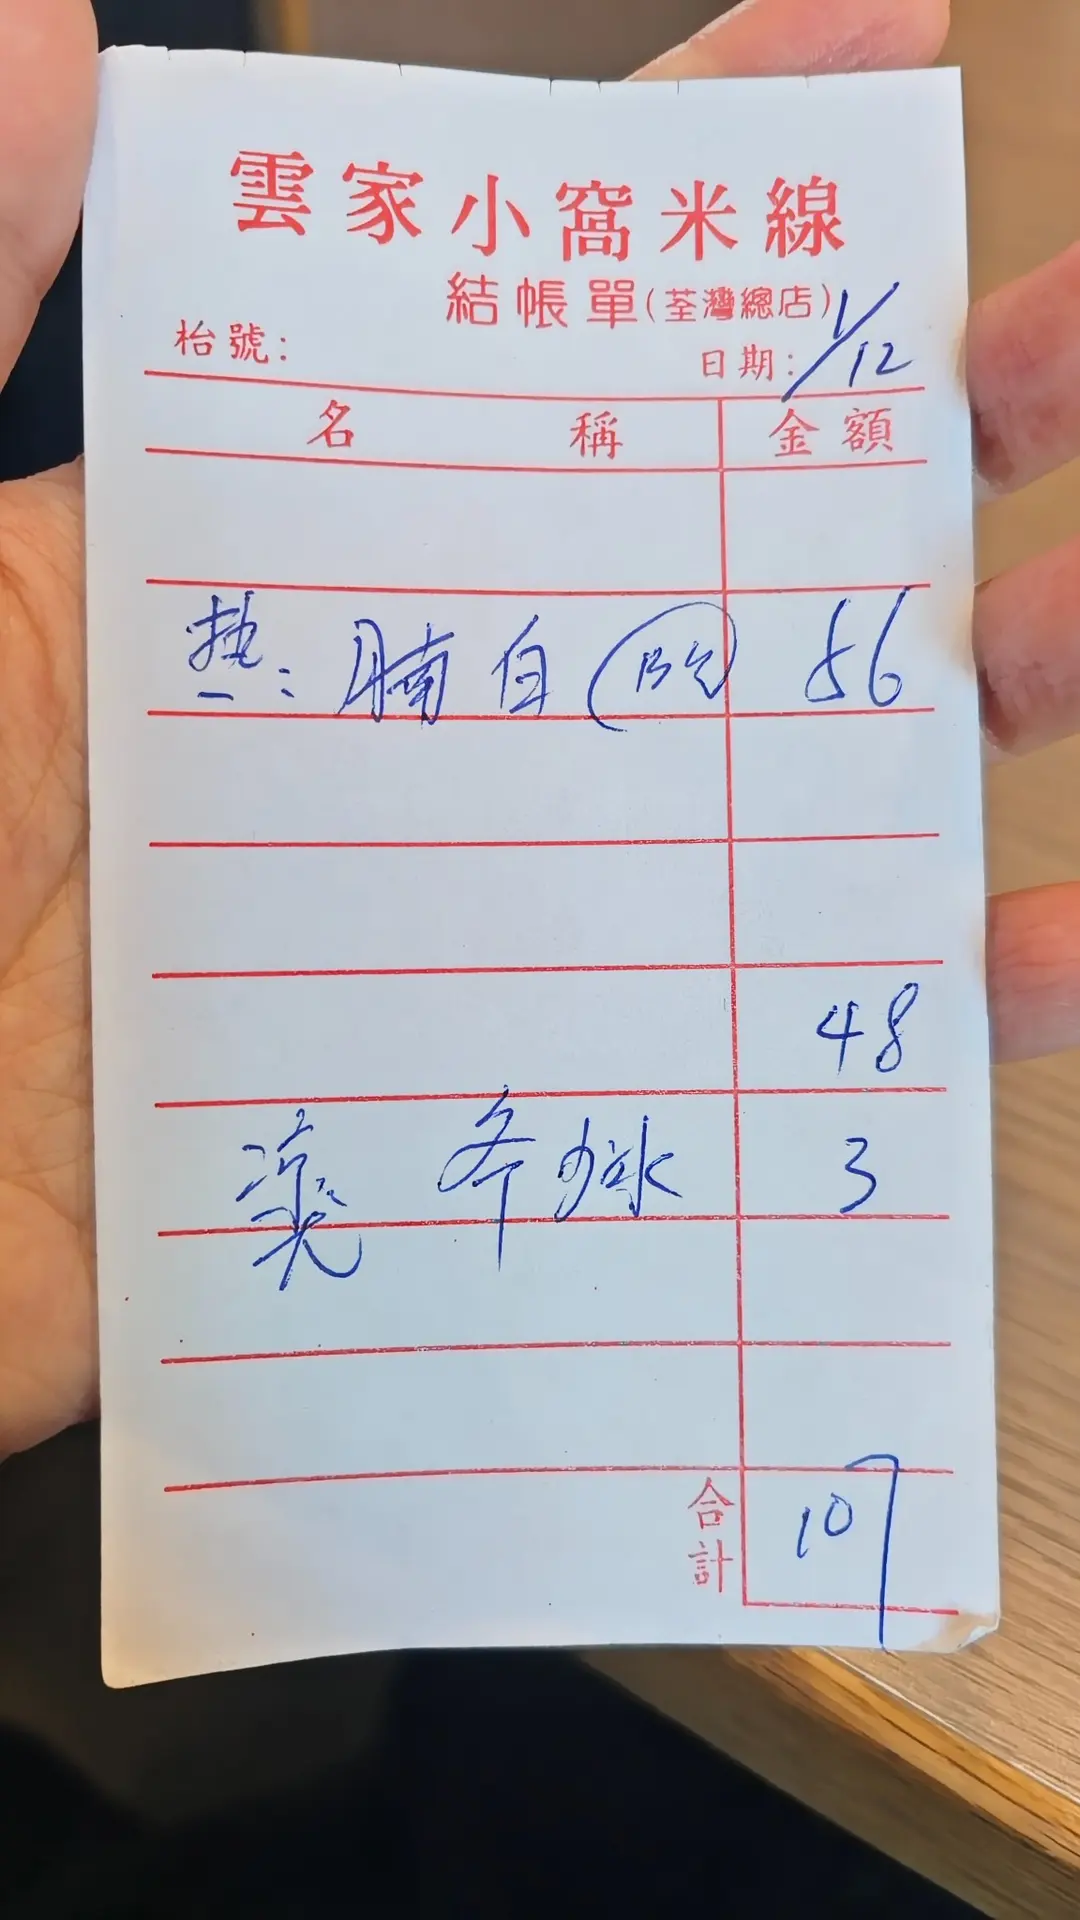 雲家小窩米線
結帳單(荃灣總店)
枱號: 日期: 1/12
名稱 金額
腩 白 56
48
3
合計 107